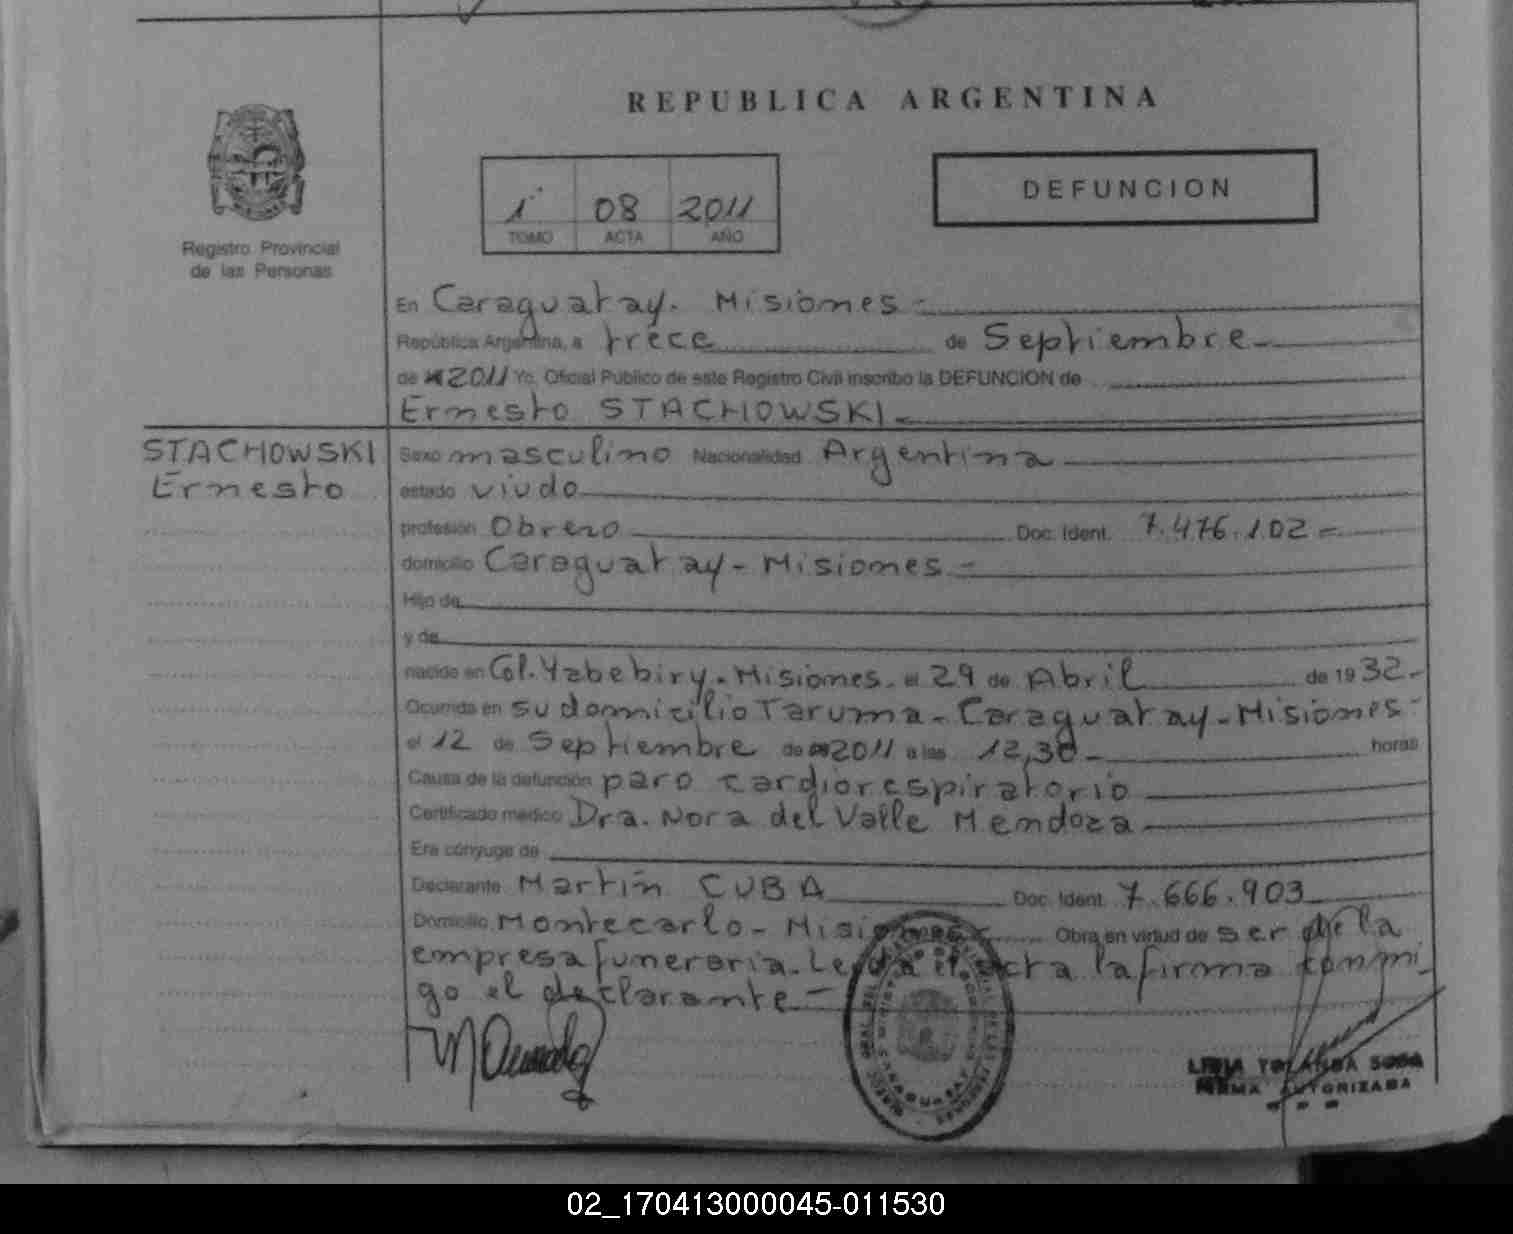 REPUBLICA ARGENTINA
Registro Provincial
de las Personas
1 08 2011
TOMO ACTA AÑO
DEFUNCION
En Caraguatay. Misiones
República Argentina, a trece de Septiembre
de 2011 Yo, Oficial Público de este Registro Civil inscribo la DEFUNCION de
Ernesto STACHOWSKI
STACHOWSKI
Ernesto
Sexo masculino Nacionalidad Argentina
estado viudo
profesión Obrero Doc. Ident. 7.476.102
domicilio Caraguatay - Misiones
Hijo de
y de
nacido en Col. Yabebiry - Misiones. el 29 de Abril de 1932
Ocurrida en su domicilio Taruma - Caraguatay - Misiones
el 12 de Septiembre de 2011 a las 12,30 horas
Causa de la defunción paro cardiorespiratorio
Certificado médico Dra. Nora del Valle Mendoza
Era cónyuge de
Declarante Martín CUBA Doc. Ident. 7.666.903
Domicilio Montecarlo - Misiones Obra en virtud de ser de la
empresa funeraria. acta la firma conmi
go el declarante
SOSA
FIRMA AUTORIZADA
02_170413000045-011530